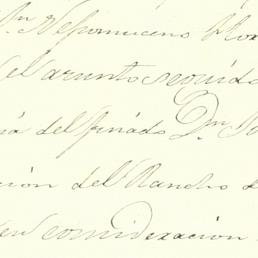 Dn. Nepomuceno Flo
el asunto seguido
del finado Dn. Jo
ción del Rancho d
en consideración